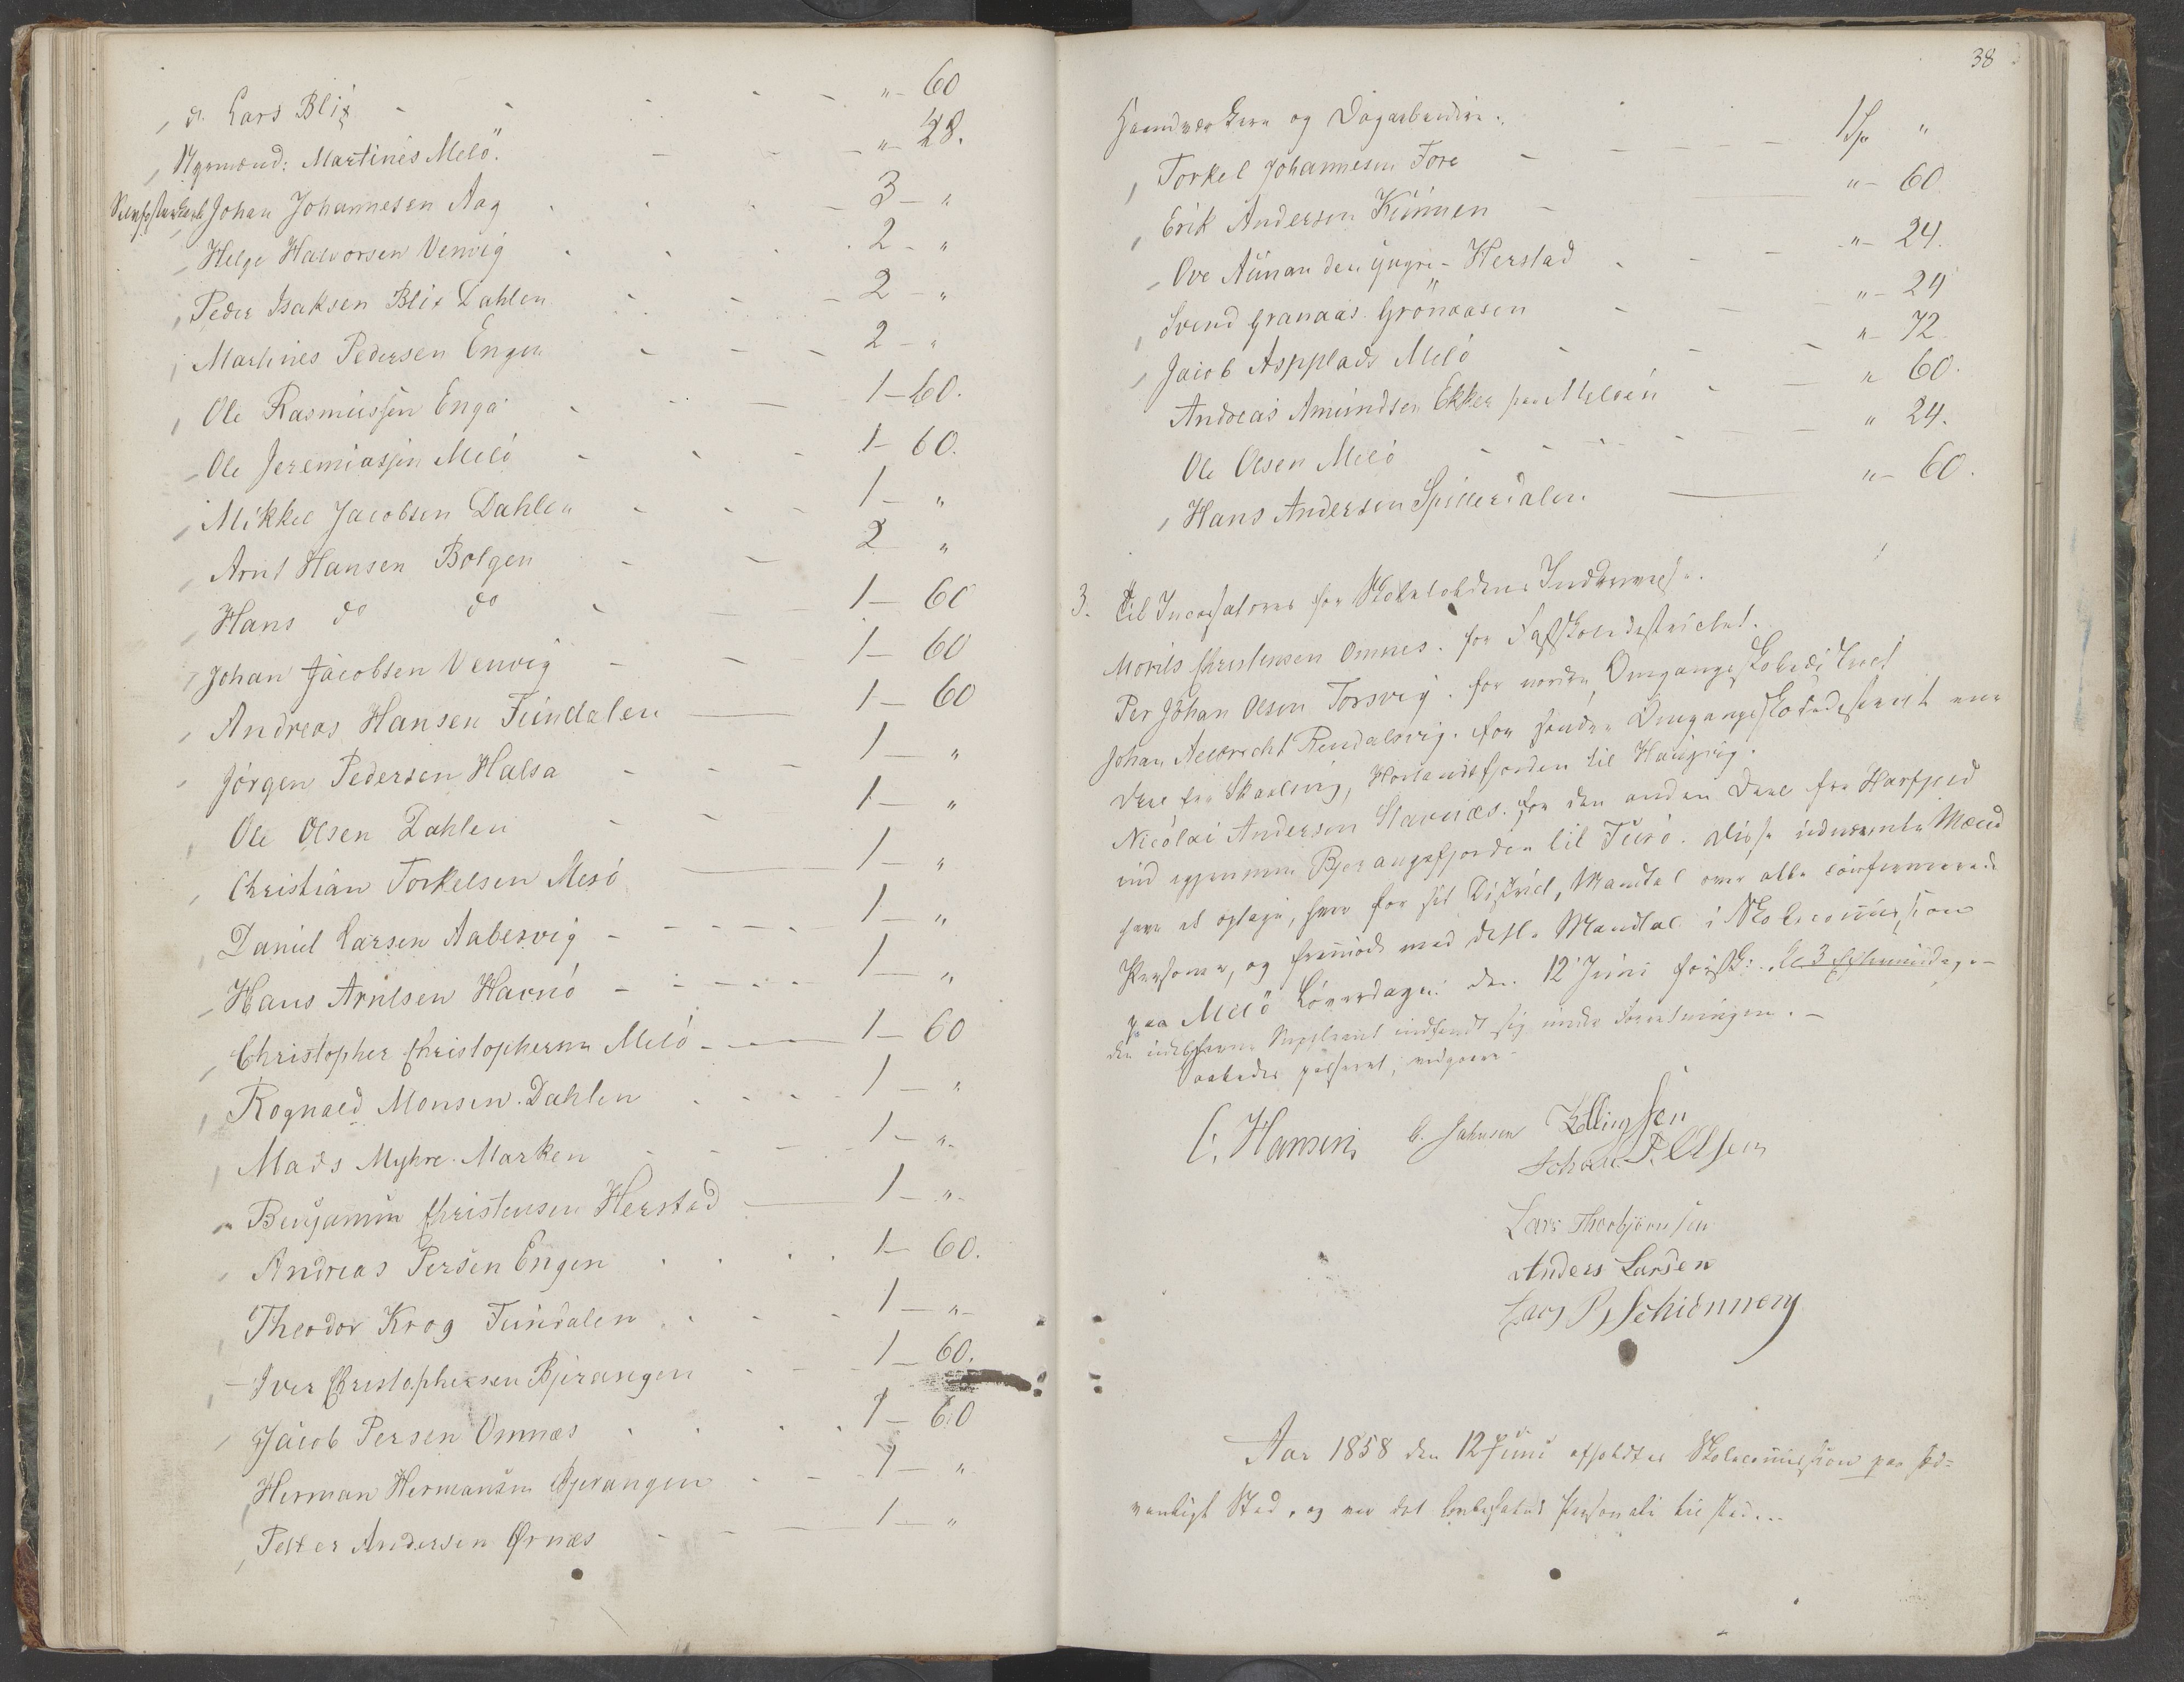 d. Lars Blix - - - - - " - 60
Styrmænd: Martines Melö. - - - " - 28.
Johan Johannesen Aag - - - 3 - "
Helge Halvorsen Venvig - - - 2 - "
Peder Isaksen Blix Dahlen - - - 2 - "
Martines Pedersen Engen - - - 2 - "
Ole Rasmussen Enga - - - 1 - 60.
Ole Jeremiassen Melö - - - 1 - 60.
Mikkel Jacobsen Dahlen - - - 1 - "
Arnt Hansen Bolgen - - 2 "
Hans do do - - 1 - 60
Johan Jacobsen Venvig - - 1 - 60
Andreas Hansen Fundalen - 1 - 60
Jörgen Pedersen Halsa - - - 1 - "
Ole Olsen Dahlen - - 1 - "
Christian Torkelsen Mesö - 1 - "
Daniel Larsen Aabervig - - - - - 1 - "
Hans Arntsen Havnö - - - - - 1 - "
Christopher Christophersen Melö - - - 1 - 60
Rognald Monsen Dahlen - - - - 1 - "
Mads Myhre Marken - - - - 1 - "
Benjamin Christensen Herstad - 1 - "
Andreas Persen Engen . . . . 1 - 60.
Theodor Krog Fundalen . . . 1 - "
Iver Christophersen Bjerangen - - 1 - 60.
Jacob Persen Omnæs . . . . 1 - 60
Herman Hermansen Bjerangen - - 1 - "
Petter Andersen Ørnæs - - - 1 - "
38
Haandværkere og Dagarbeidere.
Torkel Johannesen Fore - - - - - 1 Sp "
Erik Andersen Kunnen - " - 60
Ove Aunan den yngre - Herstad - - - " - 24.
Svend Granaas Grönaasen - - - " - 24
Jacob Aspplads Melö - - - " - 72
Andreas Amundsen Ekker paa Meløen - - " 60.
Ole Olsen Melö - - - - - - " 24.
Hans Andersen Spillerdalen " - 60.
3. Til for
Morits Christensen Omnes. for Fastskoledistrictet.
Per Johan Olsen Torsvig. for nordre Omgangsskoledistrict
Johan Albrecht Rendalsvig. for søndre Omgangsskoledistrict ene
Deel fra Skaalsvig, Holandsfjorden til Haugvig.
Nicolai Andersen Stavnæs. for den anden Deel fra Harfjeld
ind igjennem Bjerangsfjorden til Furö. Disse udnævnte Mænd
have at optage, hver for sit District, Mandtal over alle confirmerede
Personer, og fremmøde med dette Mandtal i Skolecommission
paa Melö Løverdagen den 12 Juni førstk:
den Suppleant indfandt sig under Forretningen. -
passeret, vedgaaes -
C. Hansen. C. Johnsen Ellingsen
Johan P. Olsen
Lars Thorbjörnsen
Anders Larsen
Lars P Schienning
Aar 1858 den 12 Juni afholdtes Skolecommission paa sæd-
vanligt Sted, og var det Personale tilstede. -